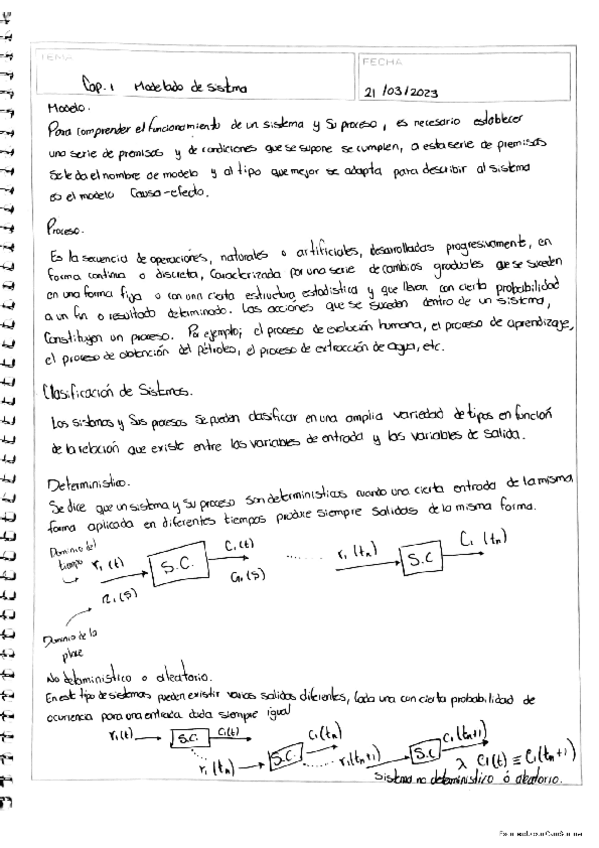 TEMA
FECHA
Cap. 1 Modelado de sistema
21 /03/2023
Modelo.
Para comprender el funcionamiento de un sistema y su proceso, es necesario establecer
una serie de premisas y de condiciones que se supone se cumplen, a esta serie de premisas
se le da el nombre de modelo y al tipo que mejor se adapta para describir al sistema
es el modelo Causa-efecto.
Proceso.
Es la secuencia de operaciones, naturales o artificiales, desarrolladas progresivamente, en
forma continua o discreta, caracterizada por una serie de cambios graduales que se suceden
en una forma fija o con una cierta estructura estadistica y que llevan con cierta probabilidad
a un fin o resultado determinado. Las acciones que se suceden dentro de un sistema,
Constituyen un proceso. Por ejemplo; el proceso de evolución humana, el proceso de aprendizaje,
el proceso de obtención del petroleo, el proceso de extracción de agua, etc.
Clasificación de Sistemas.
Los sistemas y sus procesos se pueden clasificar en una amplia variedad de tipos en función
de la relación que existe entre las variables de entrada y las variables de salida.
Deterministico.
Se dice que un sistema y su proceso son deterministicos cuando una cierta entrada de la misma
forma aplicada en diferentes tiempos produce siempre salidas de la misma forma.
Dominio del
tiempo r₁(t) S.C. C₁(t) ....... r₁(tn) S.C C₁(tn)
(s)
Dominio de la
No deterministico o aleatorio.
En este tipo de sistemas pueden existir varias salidas diferentes, cada una con cierta probabilidad de
ocurrencia para una entrada dada siempre igual
r₁(t) S.C. C₁(t)
r₁(tn) S.C. C₁(tn)
r₁(tn+1) S.C C₁(tn+1)
λ C₁(t) ≡ C₁(tn+1)
Sistema no deterministico ó aleatorio.